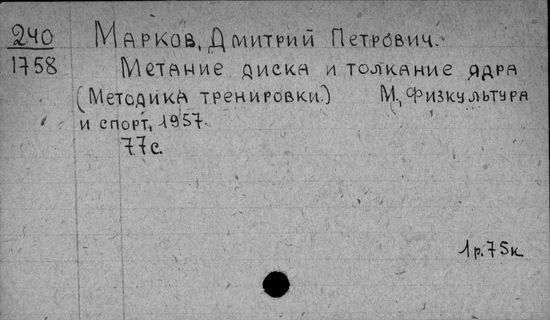 240 Марков, Дмитрий Петрович.
1758 Метание диска и толкание ядра
(Методика тренировки.) М., Физкультура
и спорт, 1957.
77с.
1р.75к